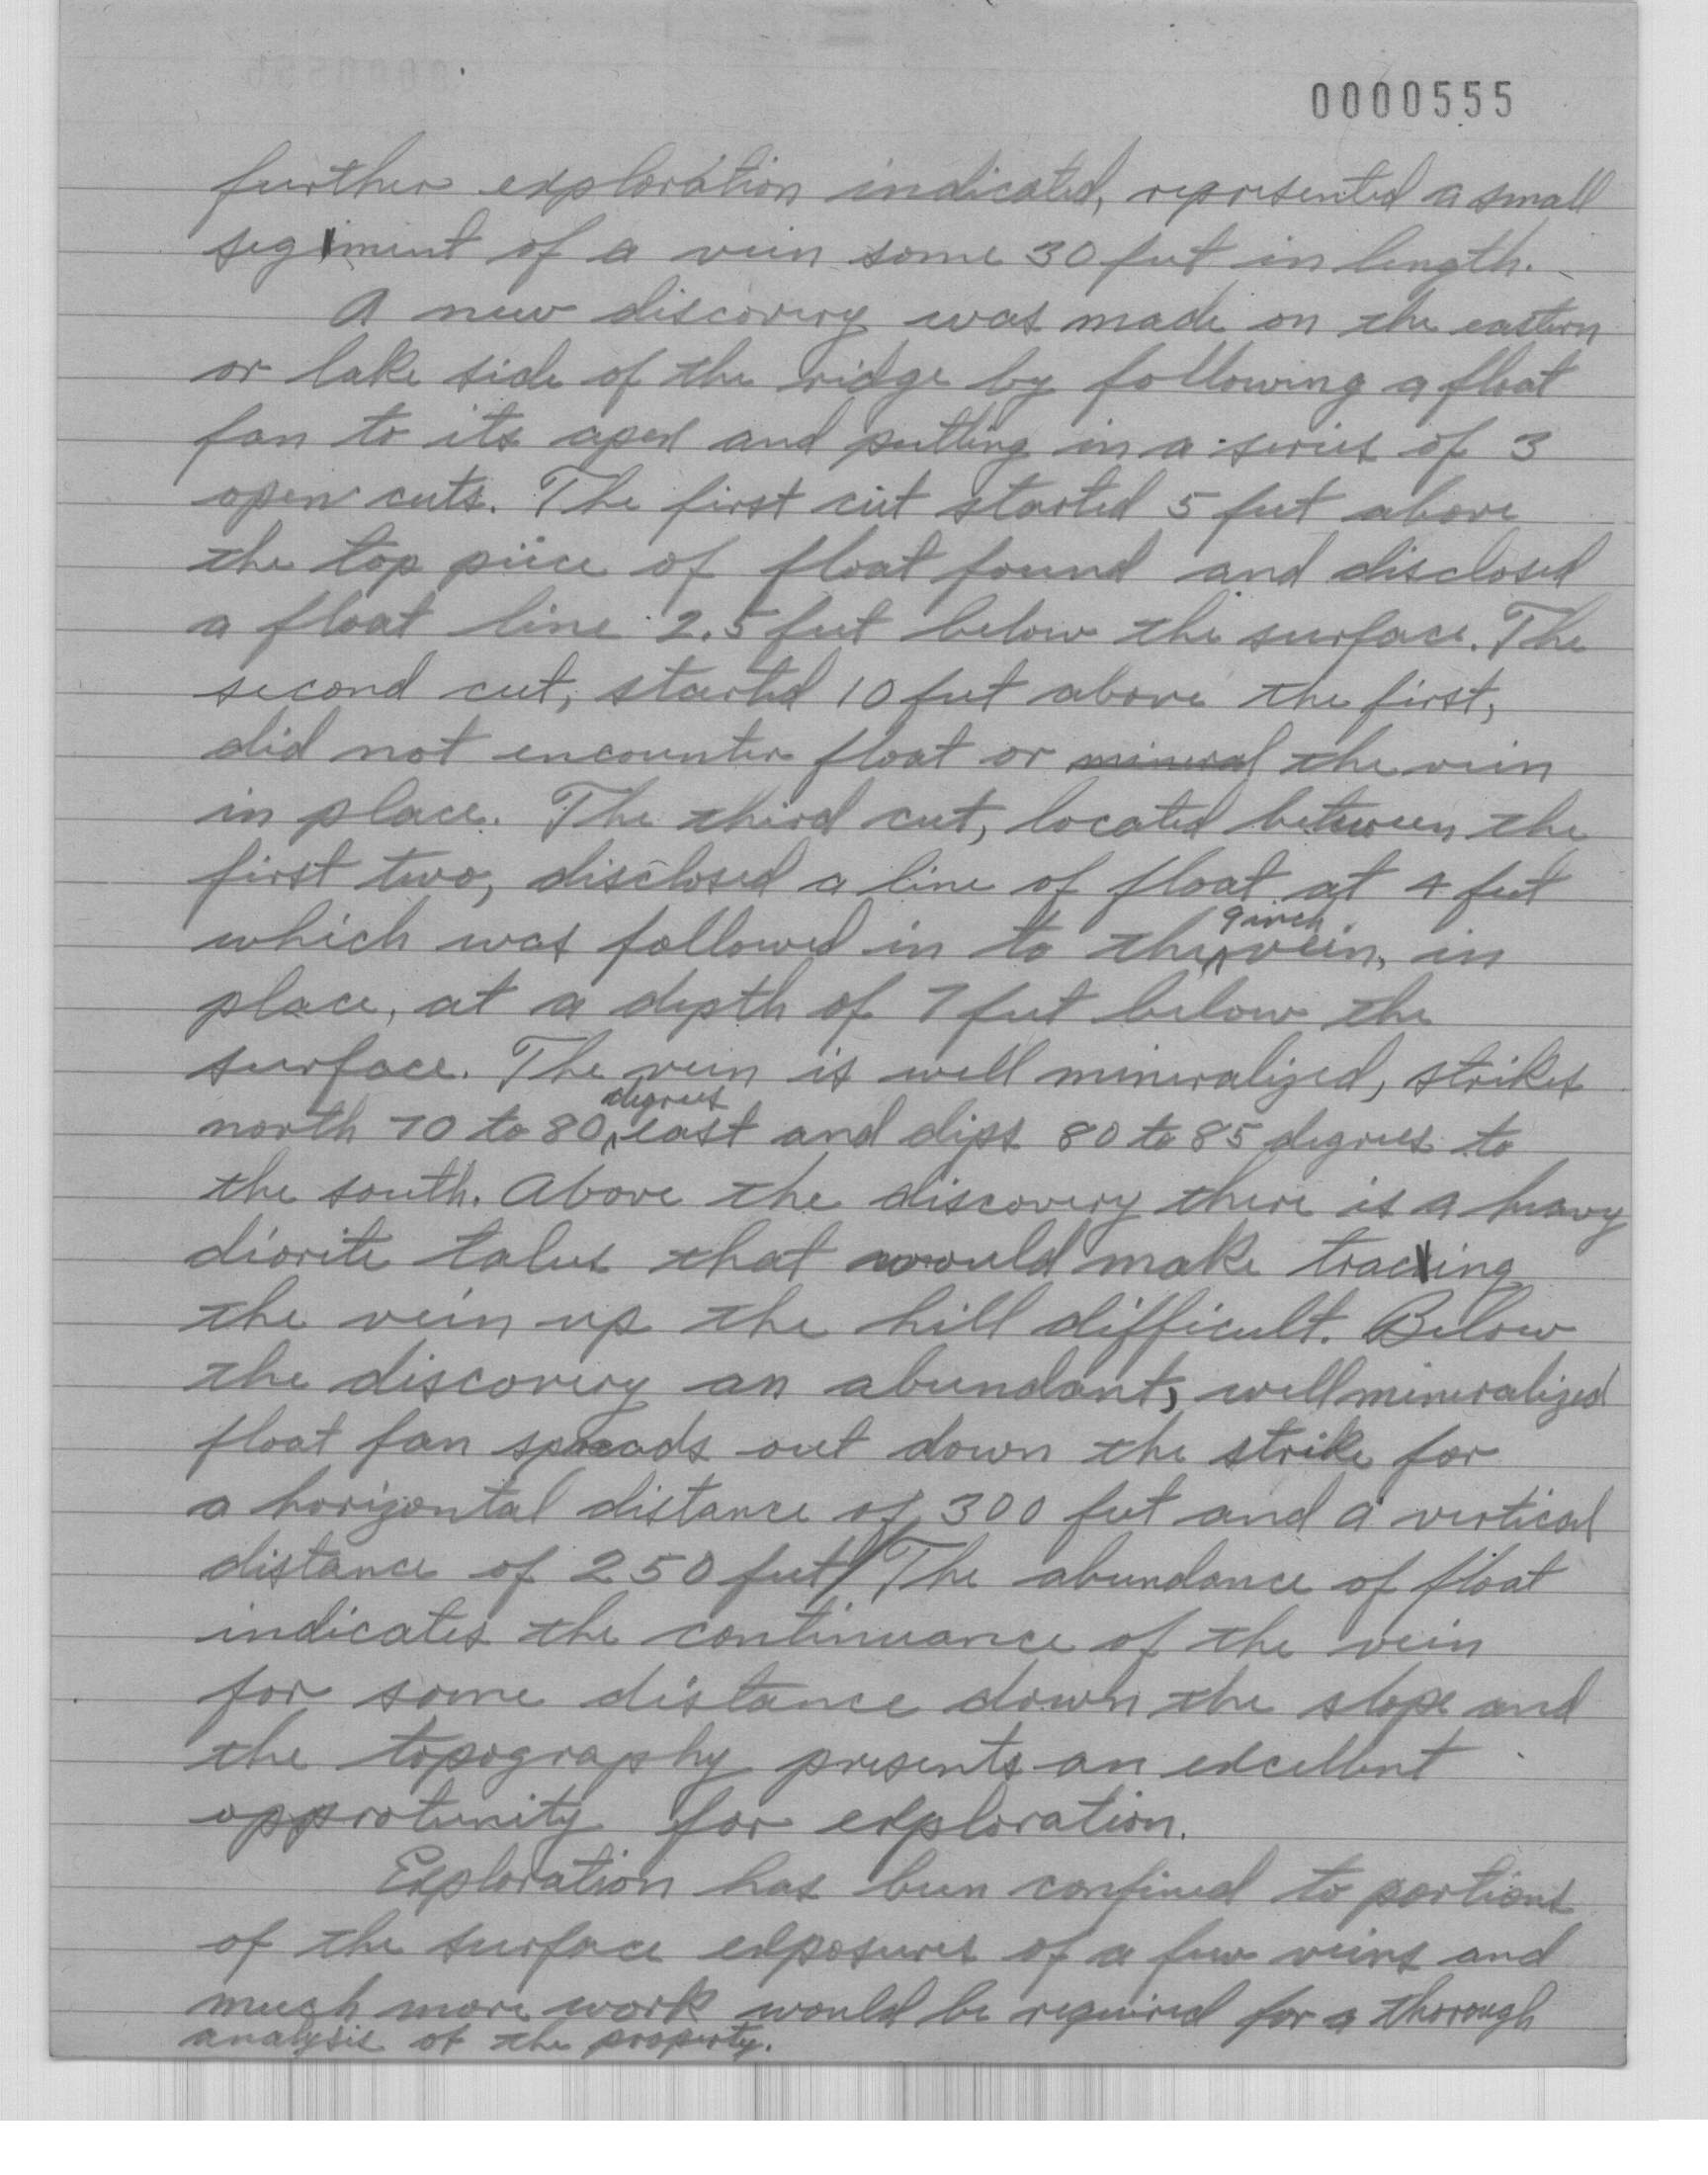 0000555
further exploration indicated, represented a small
segment of a vein some 30 feet in length.
A new discovery was made on the eastern
or lake side of the ridge by following a float
fan to its apex and putting in a series of 3
open cuts. The first cut started 5 feet above
the top piece of float found and disclosed
a float line 2.5 feet below the surface. The
second cut, started 10 feet above the first,
did not encounter float or mineral the vein
in place. The third cut, located between the
first two, disclosed a line of float at 4 feet
which was followed in to the 9 inch vein, in
place, at a depth of 7 feet below the
surface. The vein is well mineralized, strikes
north 70 to 80 degrees east and dips 80 to 85 degrees to
the south. Above the discovery there is a heavy
diorite talus that would make tracing
the vein up the hill difficult. Below
the discovery an abundant, well mineralized
float fan spreads out down the strike for
a horizontal distance of 300 feet and a vertical
distance of 250 feet/ The abundance of float
indicates the continuance of the vein
for some distance down the slope and
the topography presents an excellent
opprotunity for exploration.
Exploration has been confined to portions
of the surface exposures of a few veins and
much more work would be required for a thorough
analysis of the property.